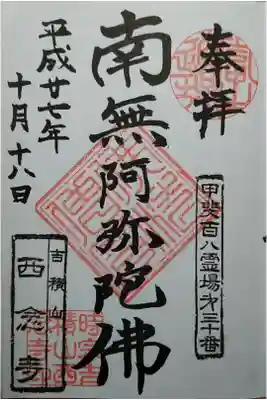 奉拝
甲斐百八霊場第三十番
南無阿弥陀佛
平成廿七年
十月十八日
吉積山
西念寺